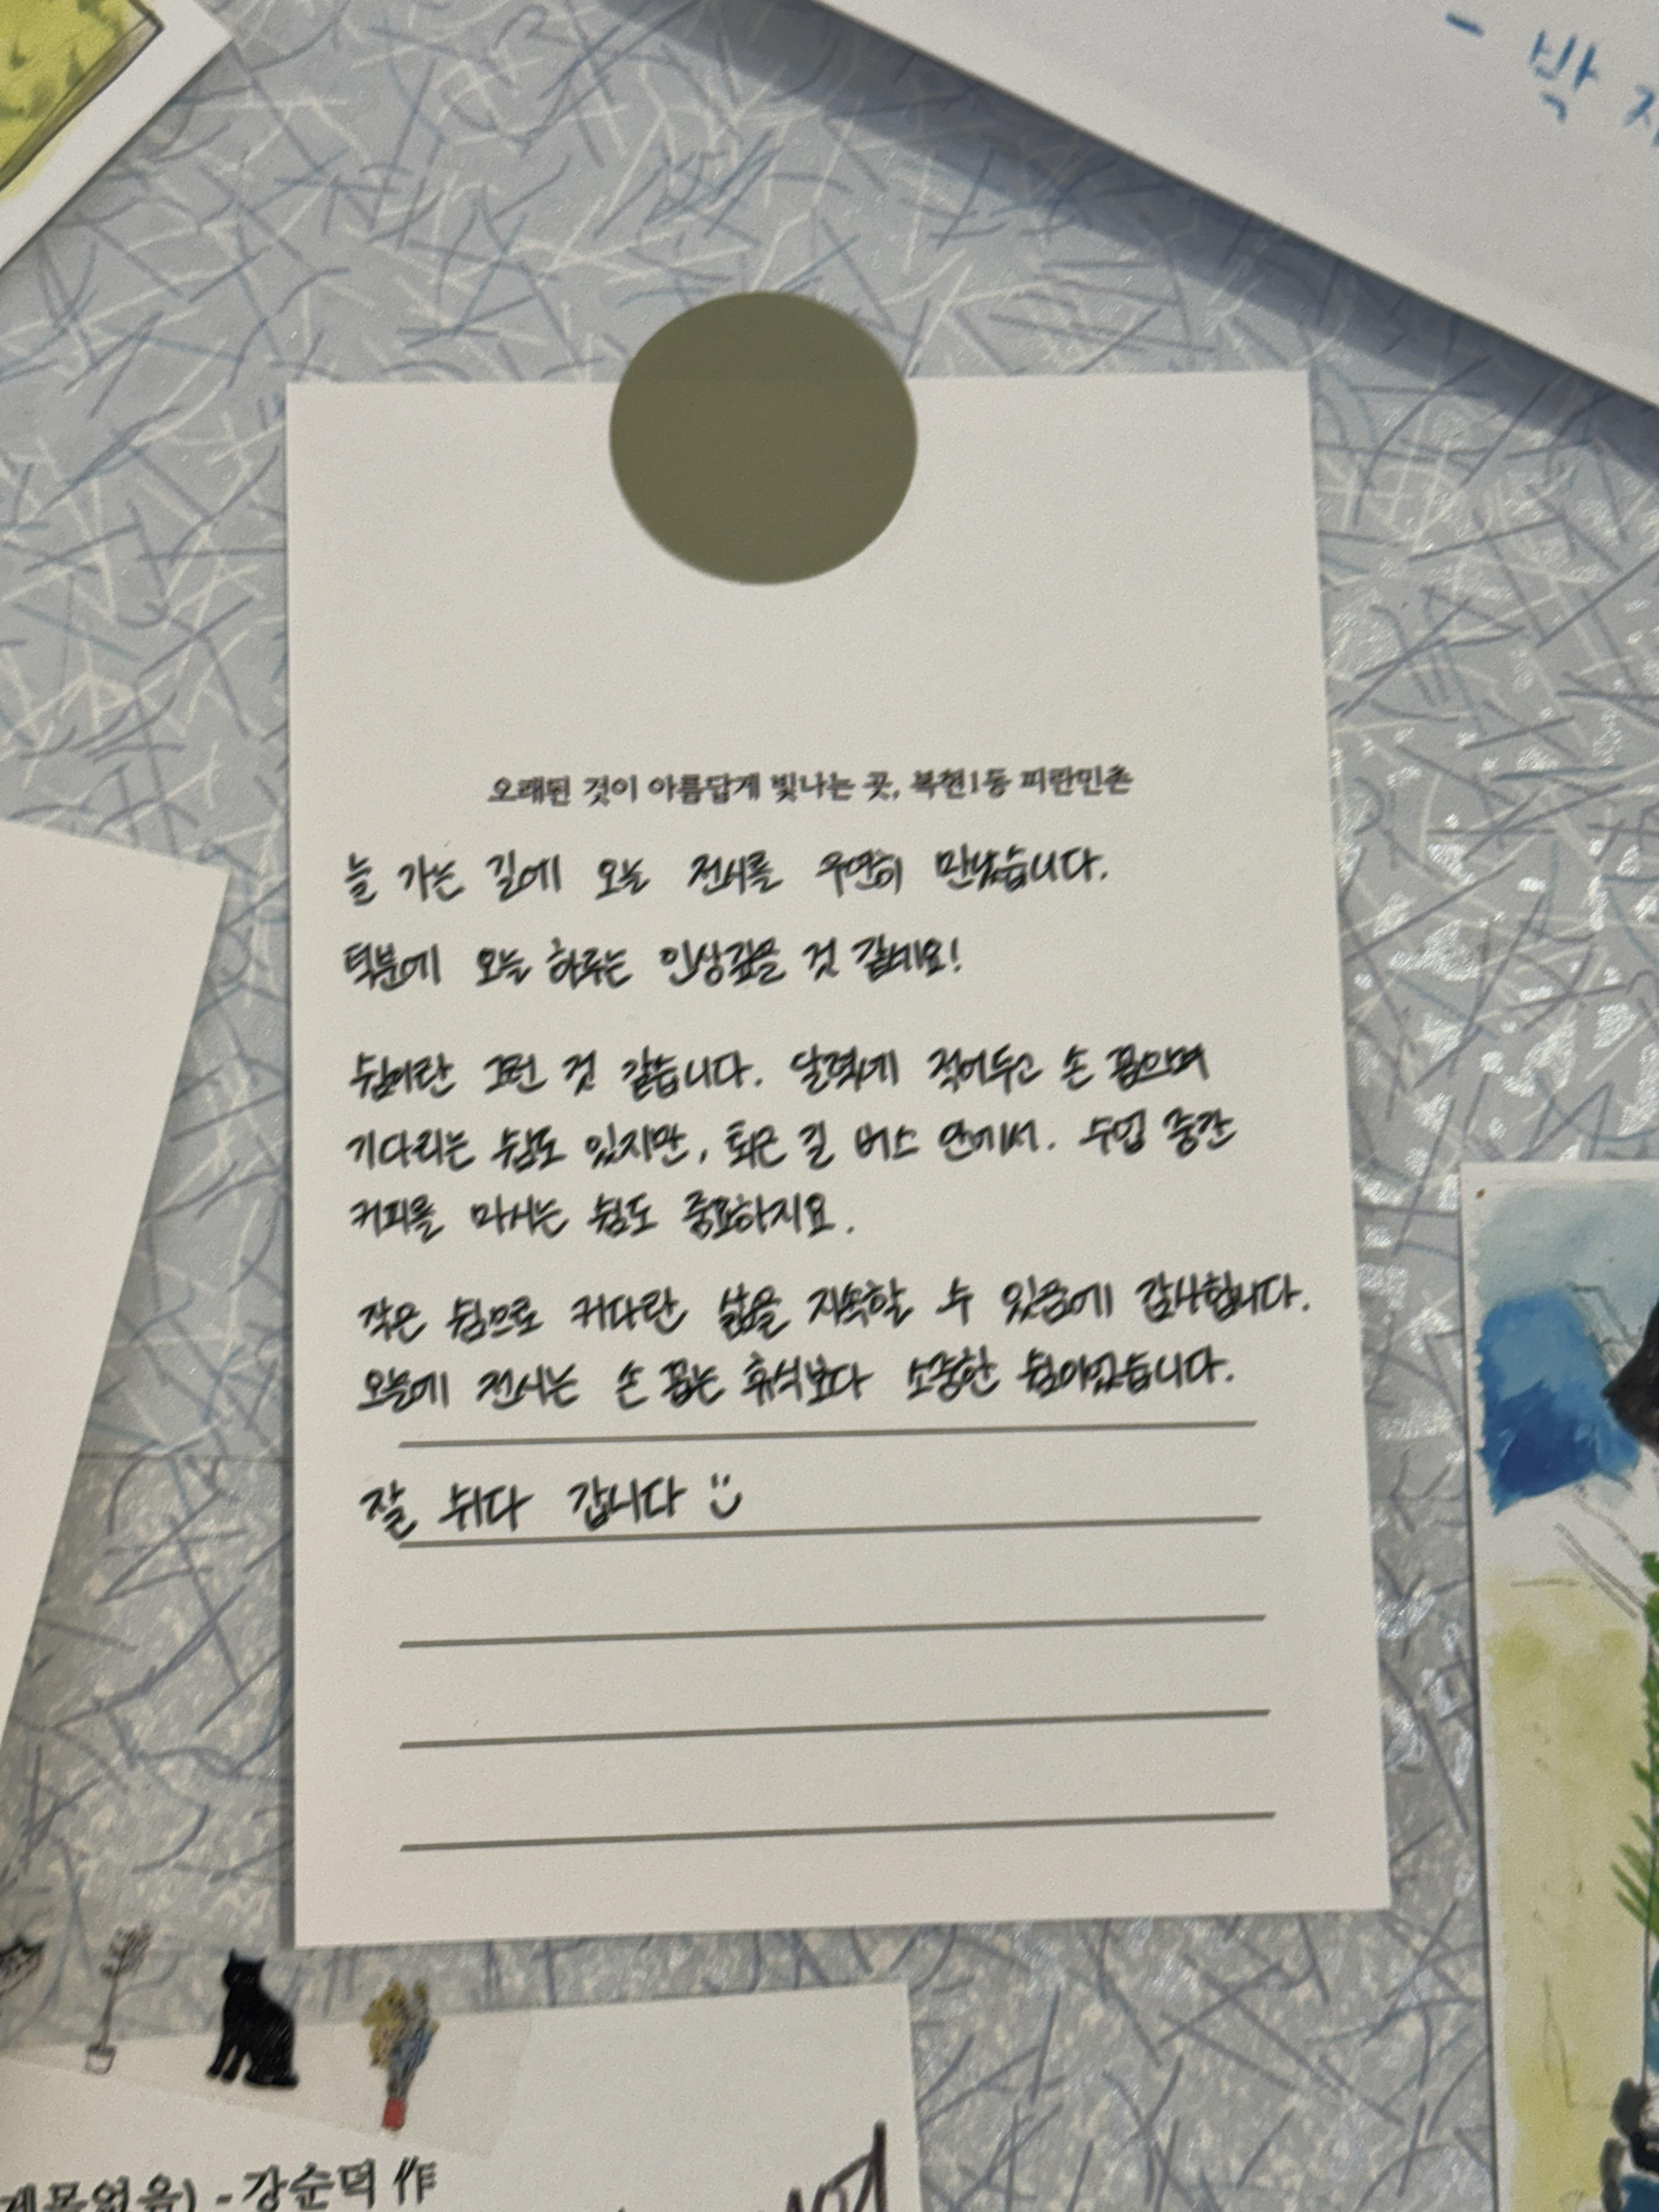 - 박
오래된 것이 아름답게 빛나는 곳, 복천1동 피란민촌
늘 가는 길에 오늘 전시를 우연히 만났습니다.
덕분에 오늘 하루는 인상깊을 것 같네요!
쉼이란 그런 것 같습니다. 달력에 적어두고 손 꼽으며
기다리는 쉼도 있지만, 퇴근 길 버스 안에서. 수업 중간
커피를 마시는 쉼도 중요하지요.
작은 쉼으로 커다란 삶을 지속할 수 있음에 감사합니다.
오늘에 전시는 손 꼽는 휴식보다 소중한 쉼이었습니다.
잘 쉬다 갑니다 :)
제목없음) - 강순덕 作